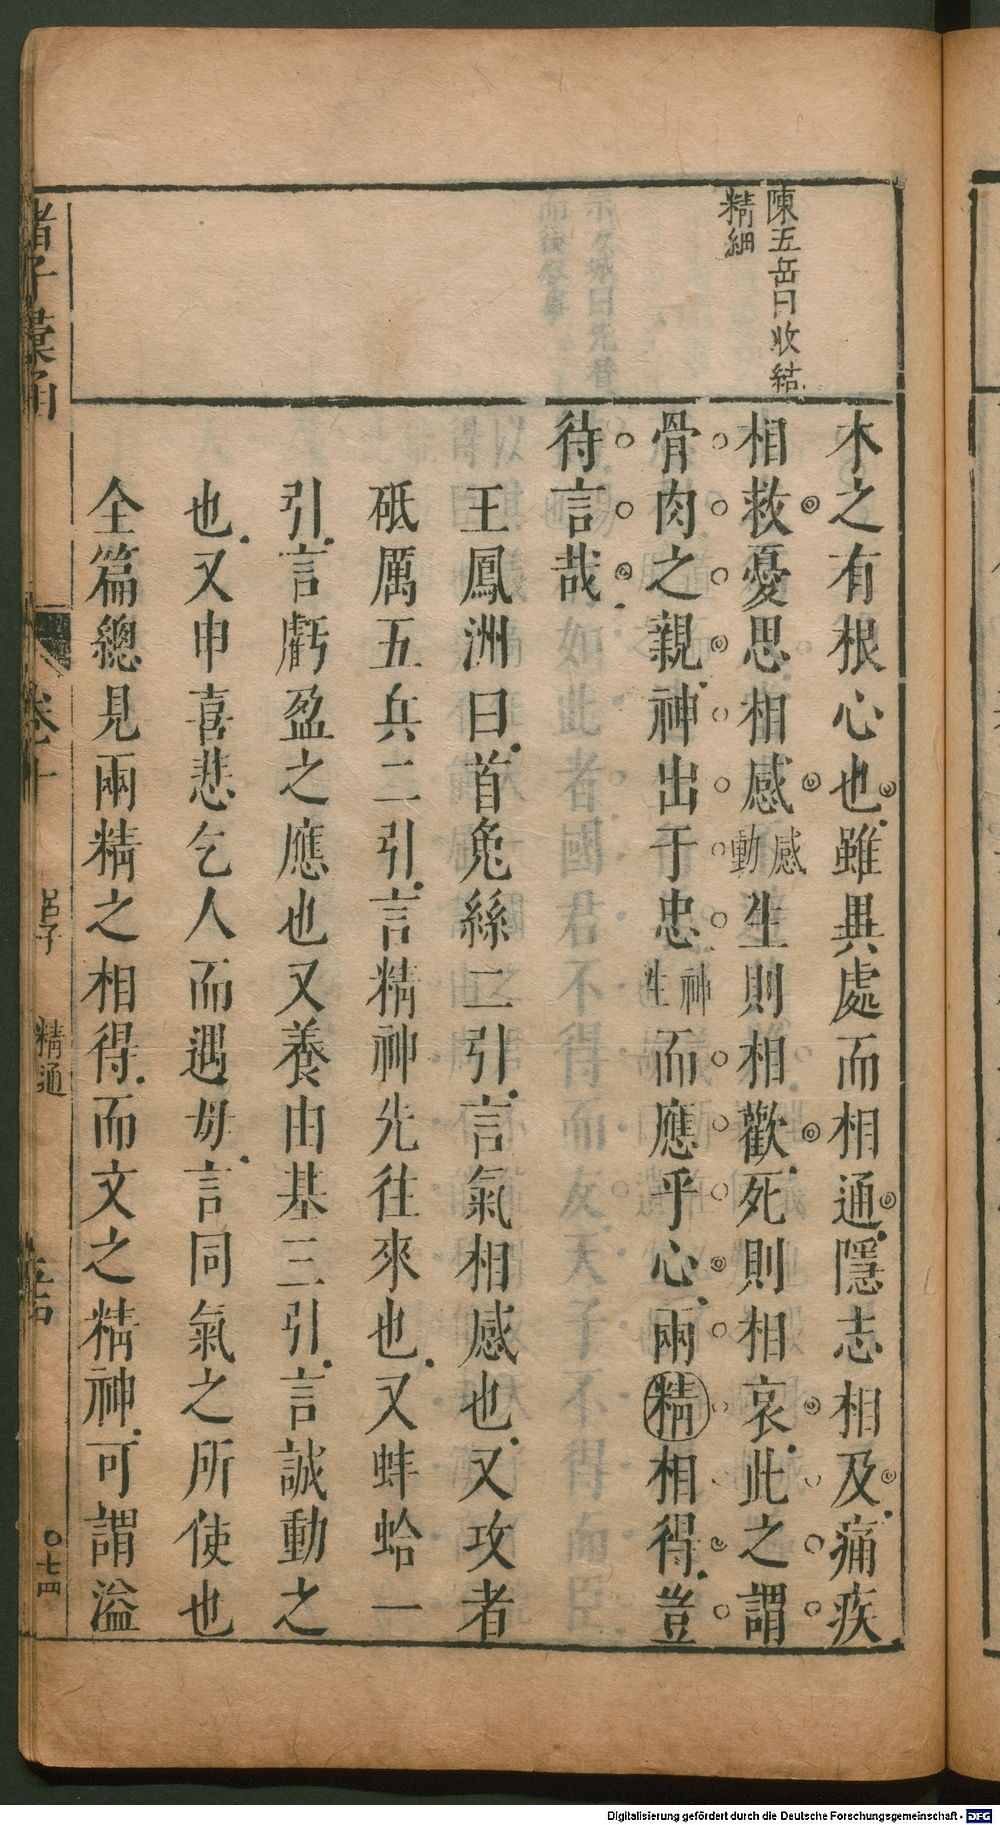 陳五岳曰收結
精細
木之有根心也雖異處而相通隱志相及痛疾
相救憂思相感感動生則相歡死則相哀此之謂
骨肉之親神出于忠神生而應乎心兩精相得豈
待言哉
王鳳洲曰首兔絲二引言氣相感也又攻者
砥厲五兵二引言精神先往來也又蚌蛤一
引言虧盈之應也又養由基三引言誠動之
也又申喜悲乞人而遇毋言同氣之所使也
全篇總見兩精之相得而文之精神可謂溢
諸子彙函
卷十
呂子
精通
〇七四
Digitalisierung gefördert durch die Deutsche Forschungsgemeinschaft - DFG